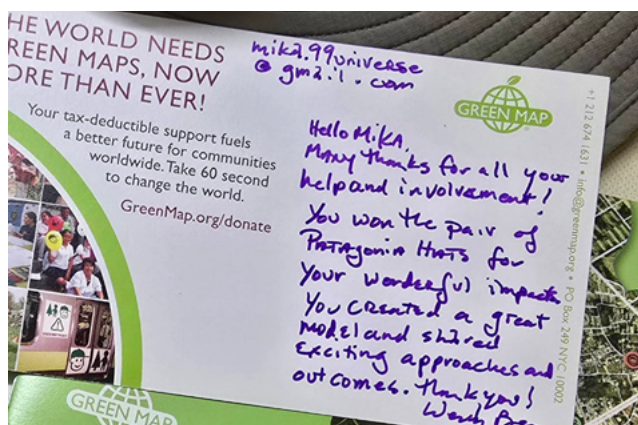 HE WORLD NEEDS
REEN MAPS, NOW
ORE THAN EVER!
Your tax-deductible support fuels
a better future for communities
worldwide. Take 60 second
to change the world.
GreenMap.org/donate
mika.99universe
@gmail.com
GREEN MAP
Hello MiKA,
Many thanks for all your
help and involvement!
You won the pair of
PATAGONIA HATS for
Your wonderful impacts
You created a great
model and shared
exciting approaches and
outcomes. Thank you!
+1 212 674 1631 • info@greenmap.org • PO Box 249 NYC 10002
GREEN MAP